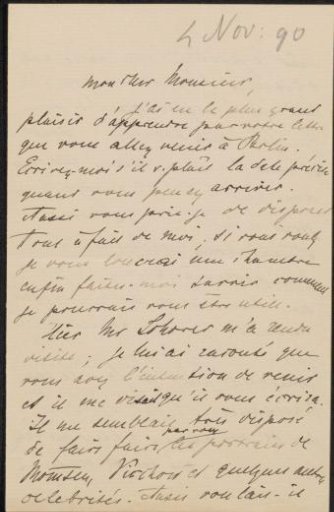 4 Nov: 90
mon cher Monsieur,
J'ai eu le plus grand
plaisir d'apprendre par votre lettre
que vous allez venir à Berlin.
Ecrivez-moi s'il v. plaît la date précise
quand vous pensez arriver.
Aussi vous prie-je de disposer
tout à fait de moi, si vous voulez
je vous louerai une chambre
enfin faites-moi savoir comment
je pourrais vous être utile.
Hier Mr m'a rendu
visite; je lui ai raconté que
vous avez l'intention de venir
et il me disait qu'il vous écrira.
Il me semblait très disposé
de faire faire par vous les portraits de
Momsen, Virchow et quelques autres
celebrités. Aussi voulait-il